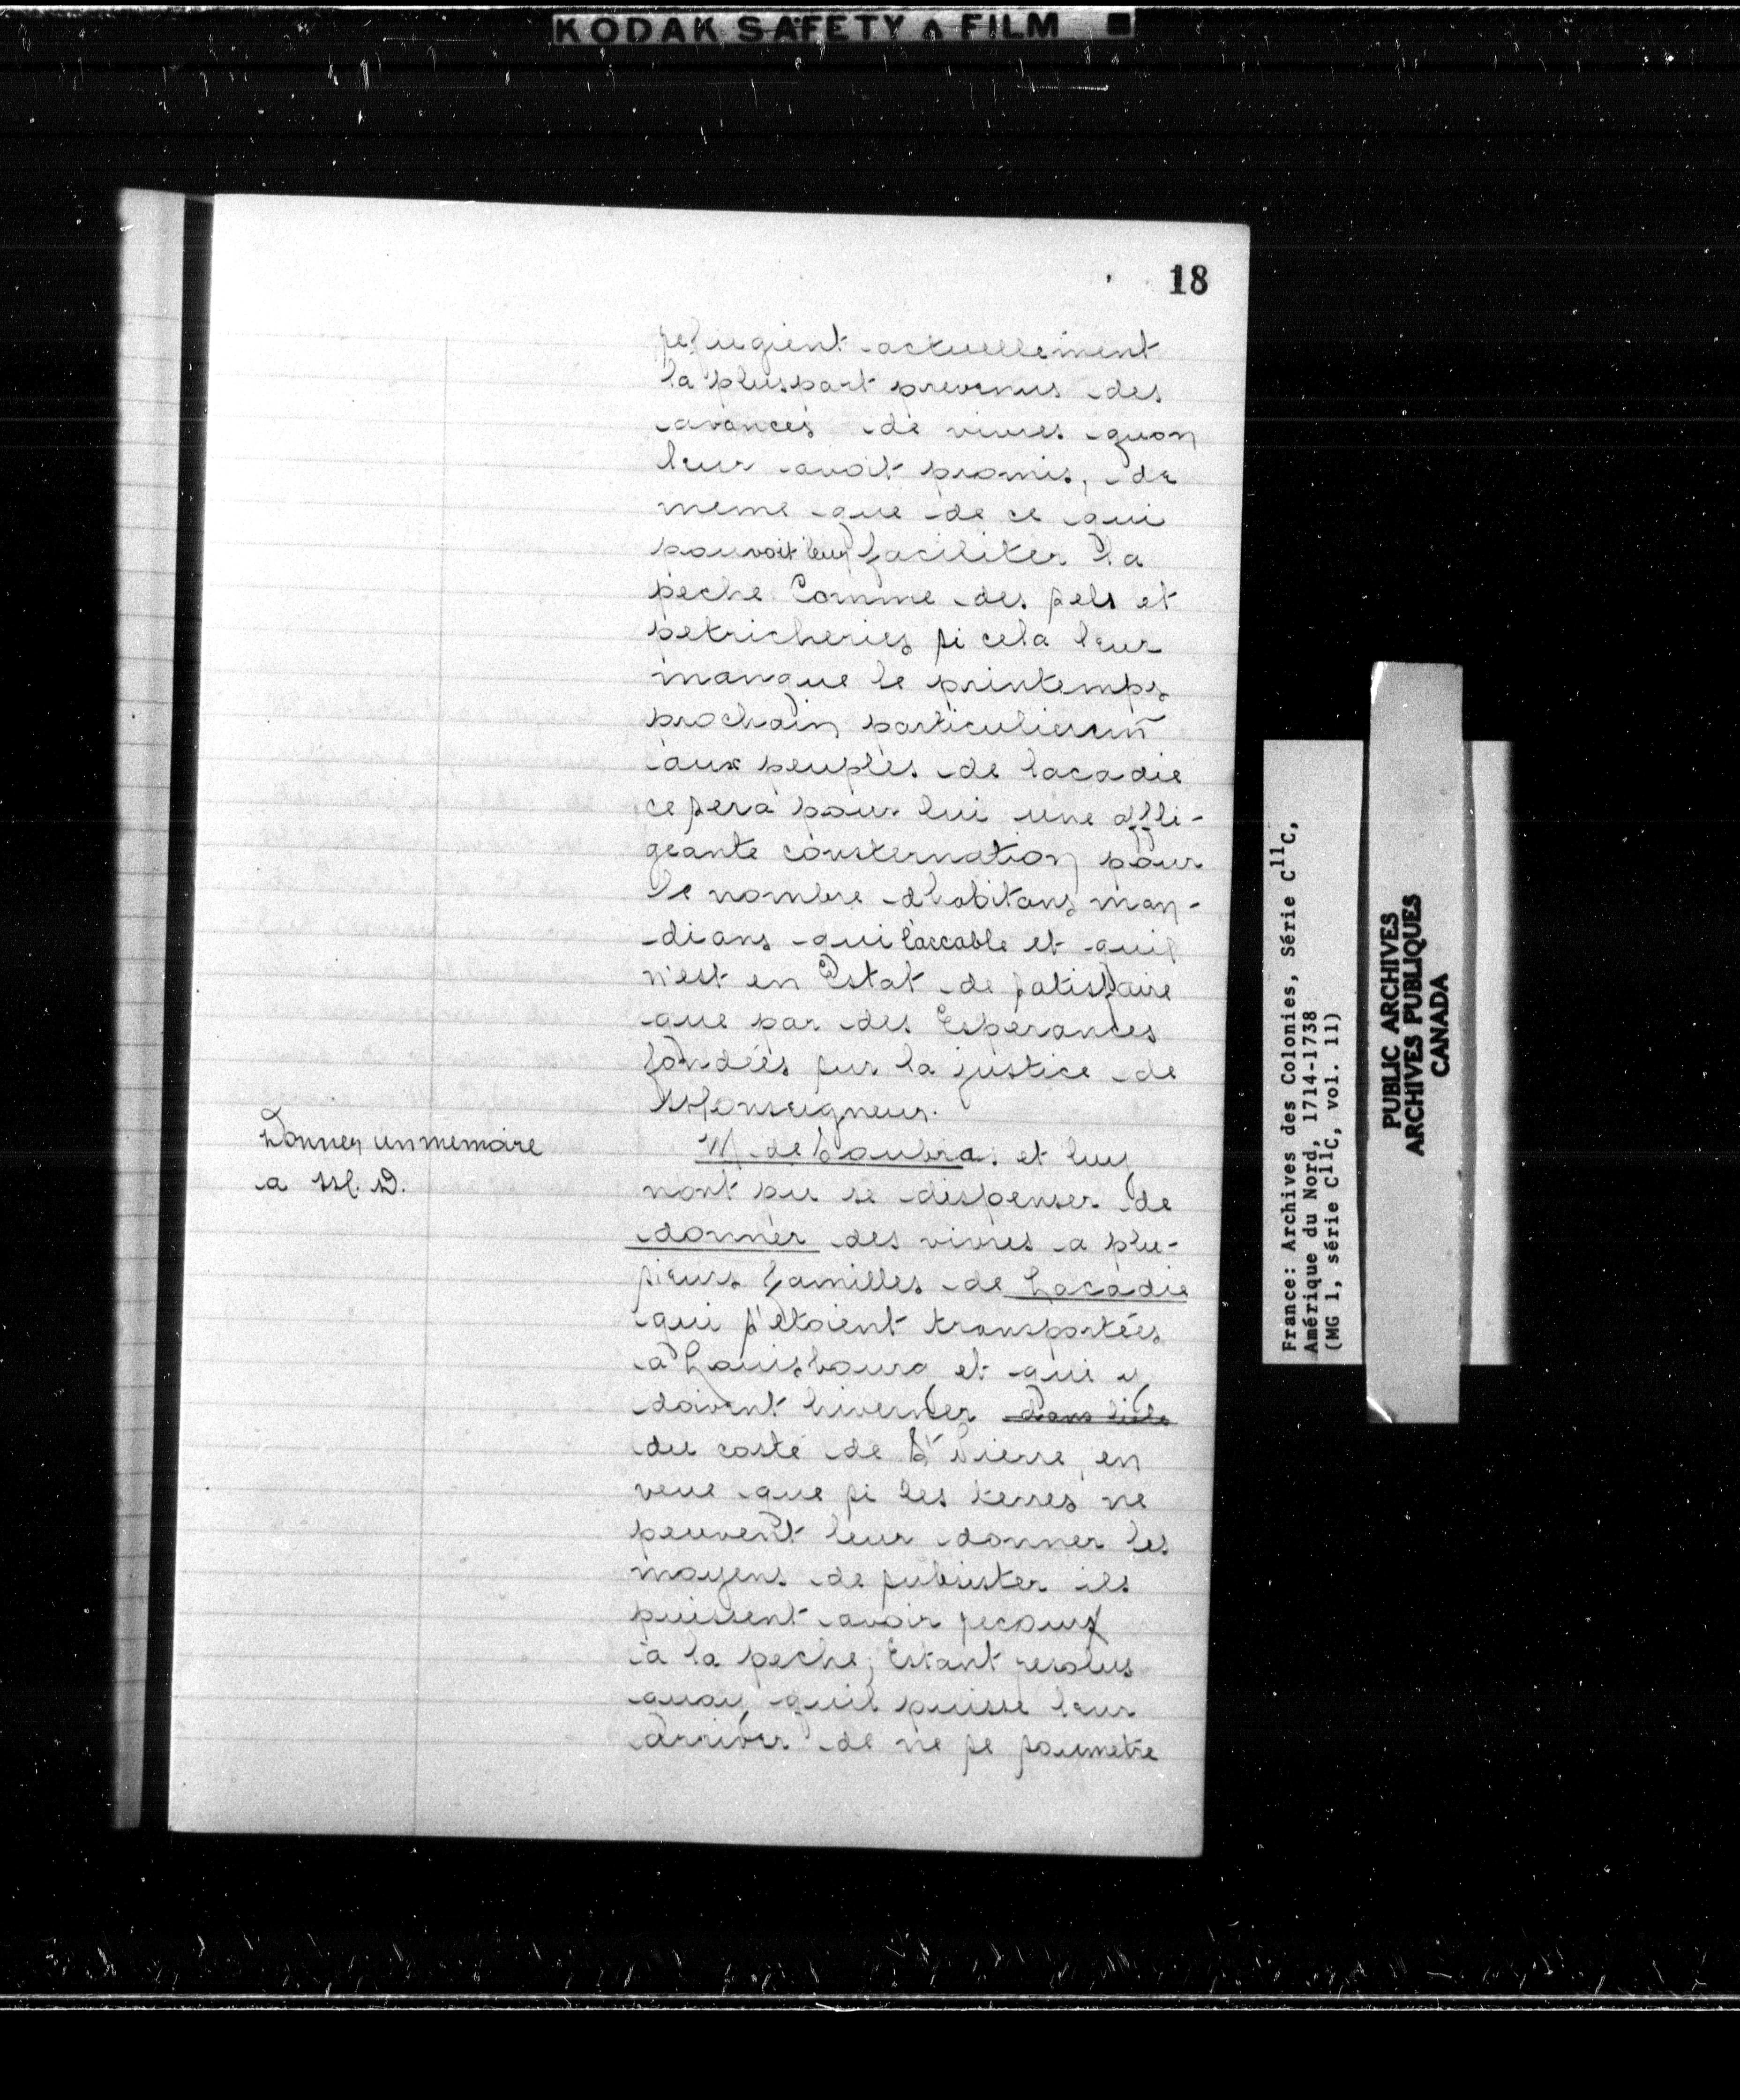 KODAK SAFETY FILM
18
refugient actuellement
la pluspart prevenus des
avances de vivres quon
leur avoit promis, de
meme que de ce qui
pouvoit leur faciliter la
peche Comme des sels et
petricheries si cela leur
manque le printemps
prochain particulierem̃
aux peuples de lacadie
ce sera pour lui une affli-
geante consternation pour
le nombre dhabitans man-
dians qui laccable et quil
n'est en Estat de satisfaire
que par des Esperances
fondées sur la justice de
Monseigneur.
Donner un memoire
a M. D.
M. de Soubras et luy
nont pu se dispenser de
donner des vivres a plu-
sieurs familles de Lacadie
qui s'étoient transportées
a Louisbourg et qui y
doivent hiverner dans lisle
du costé de St Pierre, en
veue que si les terres ne
peuvent leur donner les
moyens de subsister ils
puissent avoir recours
a la peche, Estant resolus
quoy quil puisse leur
arriver de ne se soumetre
France: Archives des Colonies, Série C11C,
Amérique du Nord, 1714-1738
(MG 1, série C11C, vol. 11)
PUBLIC ARCHIVES
ARCHIVES PUBLIQUES
CANADA